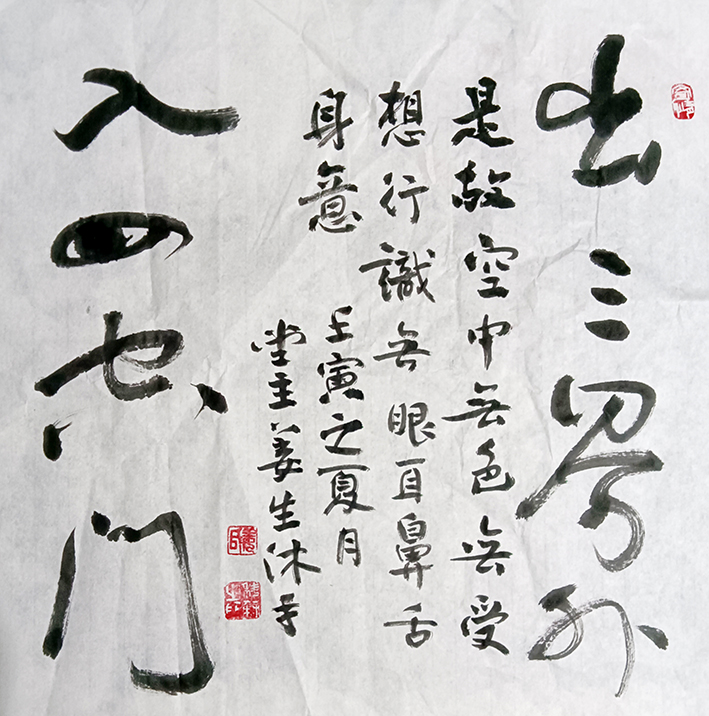 出三界外
是故空中無色無受
想行識無眼耳鼻舌
身意
壬寅之夏月
堂主姜生沐手
入四空門